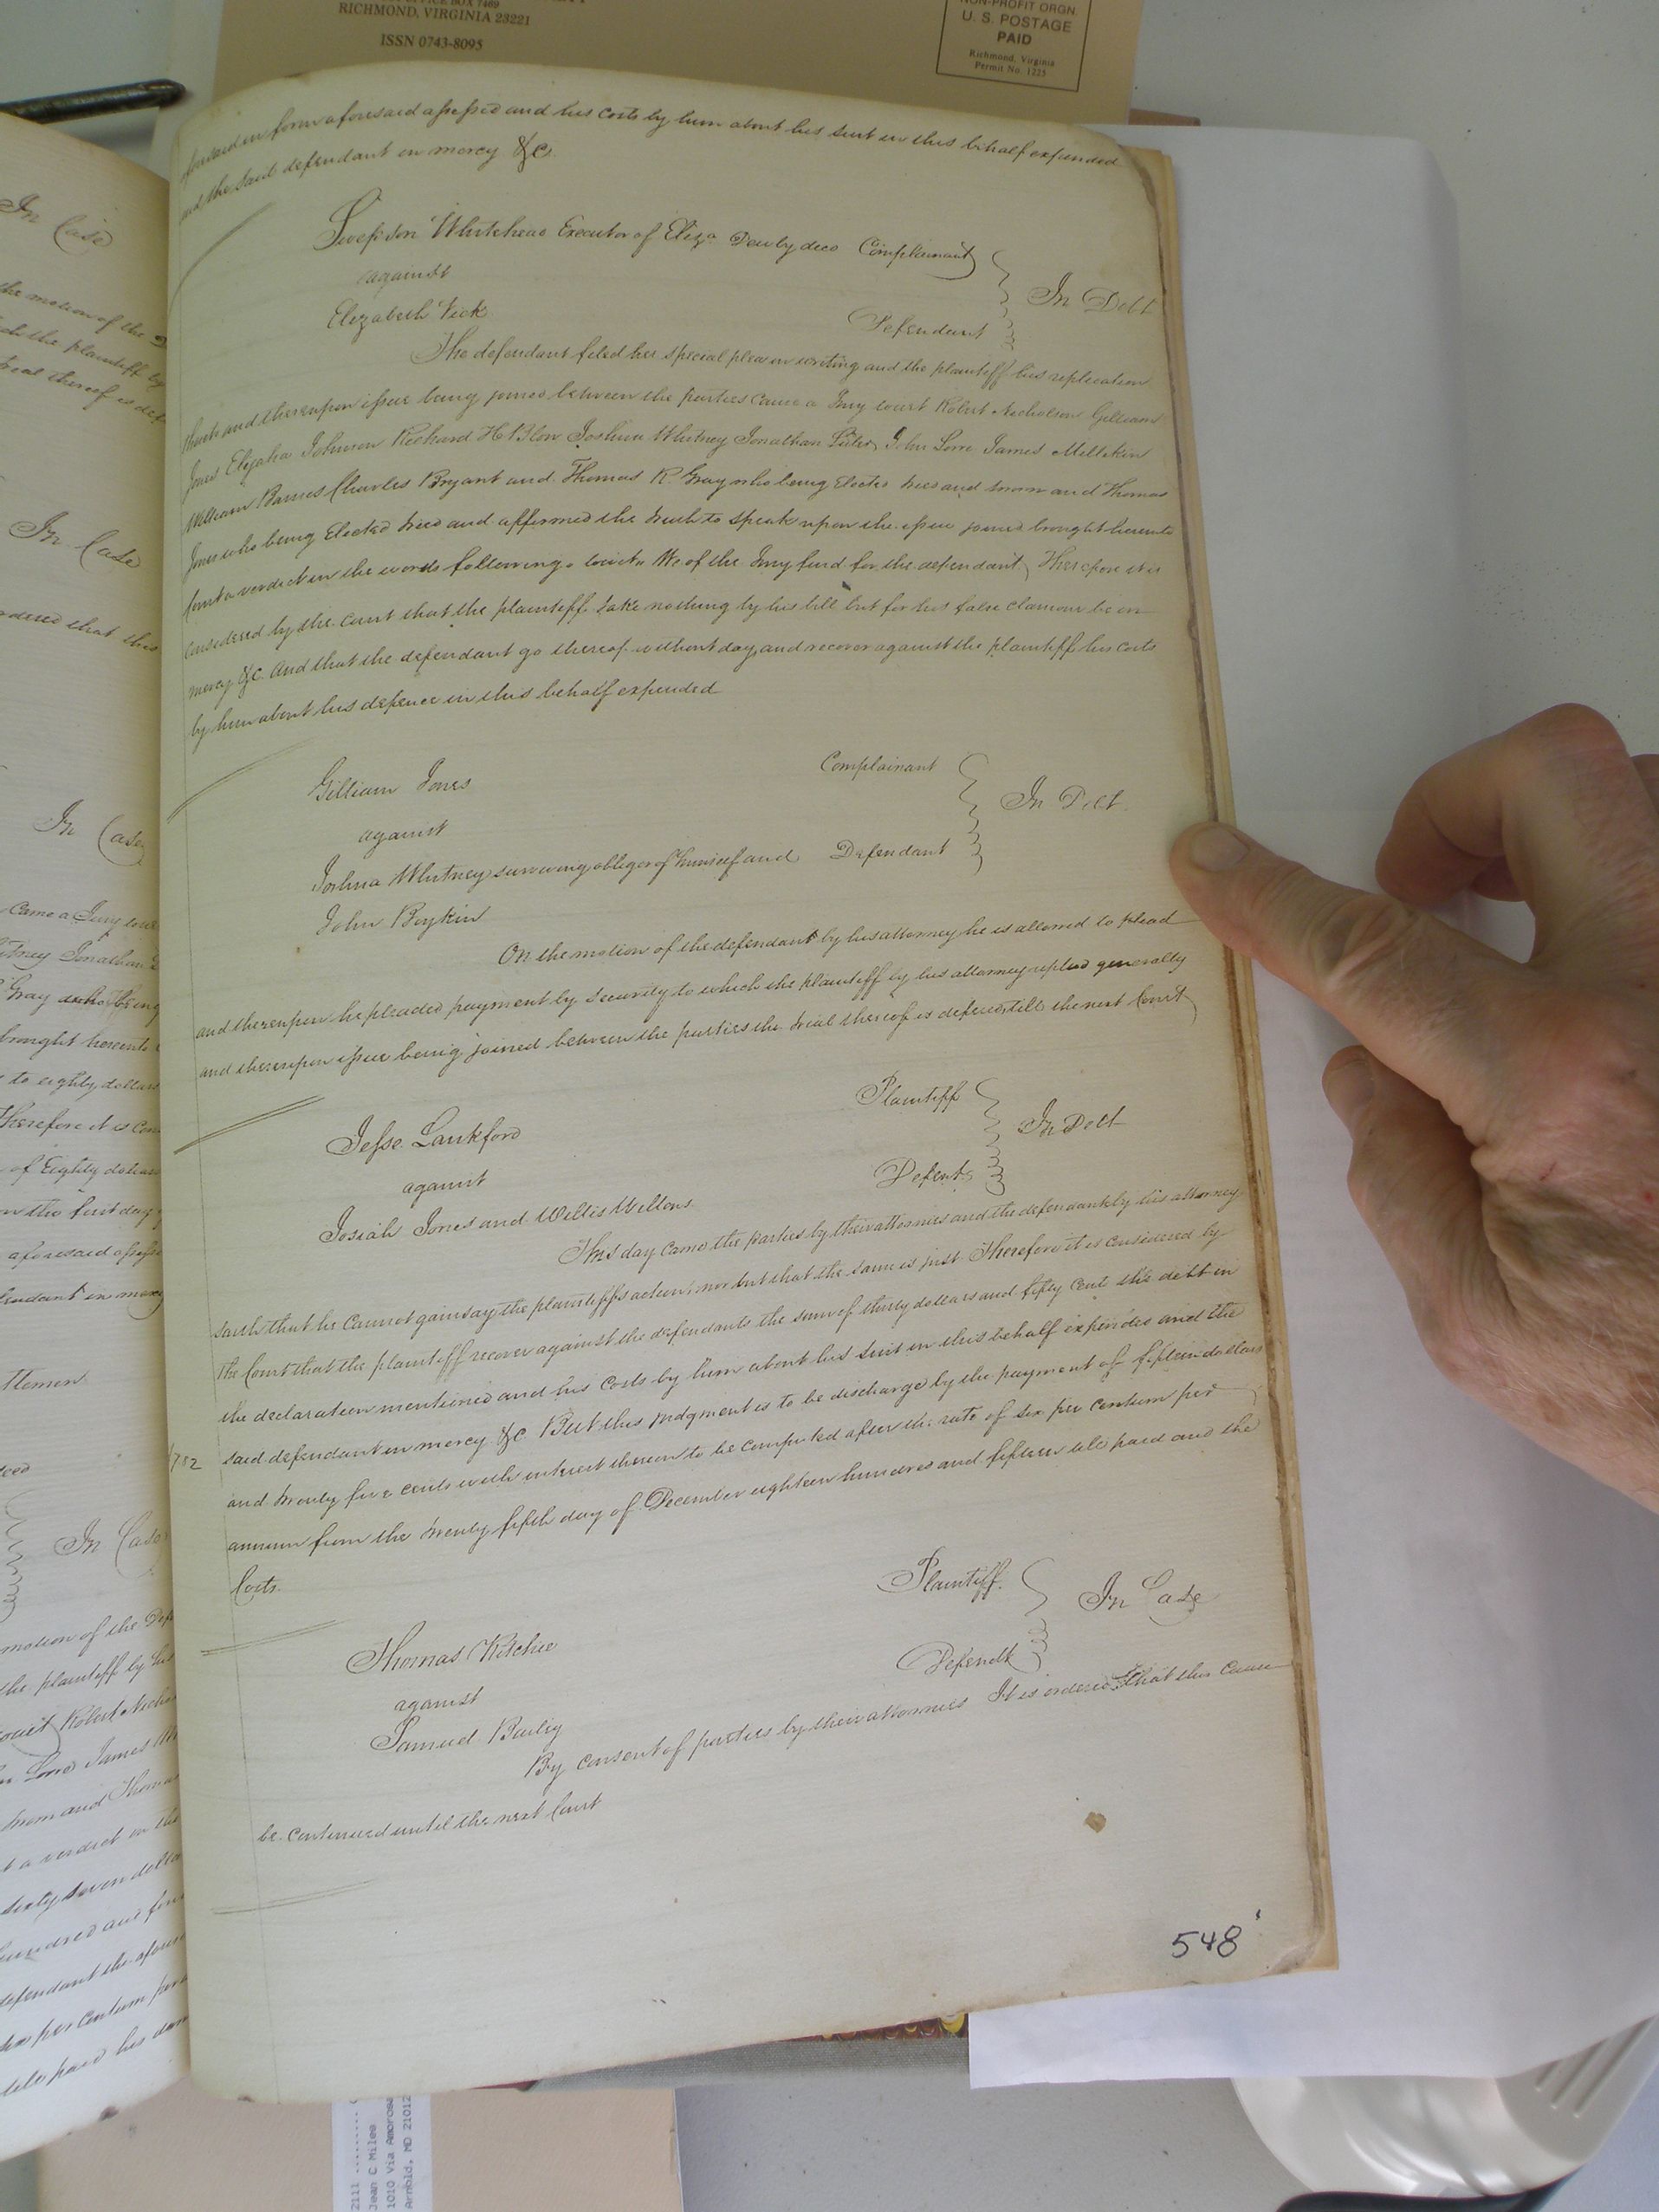 RICHMOND, VIRGINIA 23221
ISSN 0743-8095
NON-PROFIT ORGN.
U. S. POSTAGE
PAID
Richmond, Virginia
Permit No. 1225
in form aforesaid assessed and his costs by him about his suit in this behalf expended
and the said defendant in mercy &c.
Whitehead Executor of Eliza Newby decd Complainant
against
In Debt
Elizabeth Vick
Defendant
The defendant filed her special plea in writing and the plaintiff his replication
and thereupon issue being joined between the parties came a Jury towit Robert Nicholson Gilliam
Jones Elijaha Johnson Richard H Blow Joshua Whitney Jonathan John James Millikin
William Barnes Charles Bryant and Thomas R. Gray who being Elected tried and sworn and Thomas
Jones who being Elected tried and affirmed the truth to speak upon the issue joined brought hereinto
Court a verdict in the words following, towit, We of the Jury find for the defendant, Therefore it is
considered by the court that the plaintiff take nothing by his bill but for his false clamour be in
mercy &c. And that the defendant go thereof without day, and recover against the plaintiff his costs
by him about his defence in this behalf expended
Gilliam Jones
Complainant
against
In Debt
Joshua Whitney surviving obligor of himself and Defendant
John Boykin
On the motion of the defendant by his attorney he is allowed to plead
and thereupon he pleaded payment by security to which the plaintiff by his attorney replied generally
and thereupon issue being joined between the parties the trial thereof is defered till the next Court
Jesse Lankford
Plaintiff
against
In Debt
Josiah Jones and Willis Wellons
Defents
This day came the parties by their attornies and the defendant by his attorney
saith that he cannot gainsay the plaintiffs action, nor but that the same is just. Therefore it is considered by
the Court that the plaintiff recover against the defendants the sum of thirty dollars and fifty cent the debt in
the declaration mentioned and his Costs by him about his suit in this behalf expended and the
said defendant in mercy &c. But this judgment is to be discharged by the payment of fifteen dollars
and twenty five cents with interest thereon to be computed after the rate of six per centum per
annum from the twenty fifth day of December eighteen hundred and fifteen till paid and the
Costs.
Thomas Ritchie
Plaintiff.
against
In Case
Samuel Bailey
Defendt
By consent of parties by their attornies It is ordered that this Cause
be continued until the next Court
548
In Case
the motion of the
the plaintiff by
trial thereof is def
In Case
ordered that this
In Case
Came a Jury towit
Whitney Jonathan
Gray who being
brought hereinto
to eighty dollars
Therefore it is con
of Eighty dollars
on the first day
aforesaid assess
defendant in mercy
In Case
motion of the Def
the plaintiff by his
towit Robert Nicho
James Mi
sworn and Thomas
a verdict in the
sixty seven dolla
hundred and four
defendant the afore
six per centum per
till paid his dam
2111
Jean C Miles
1010 Via Amorosa
Arnold, MD 21012